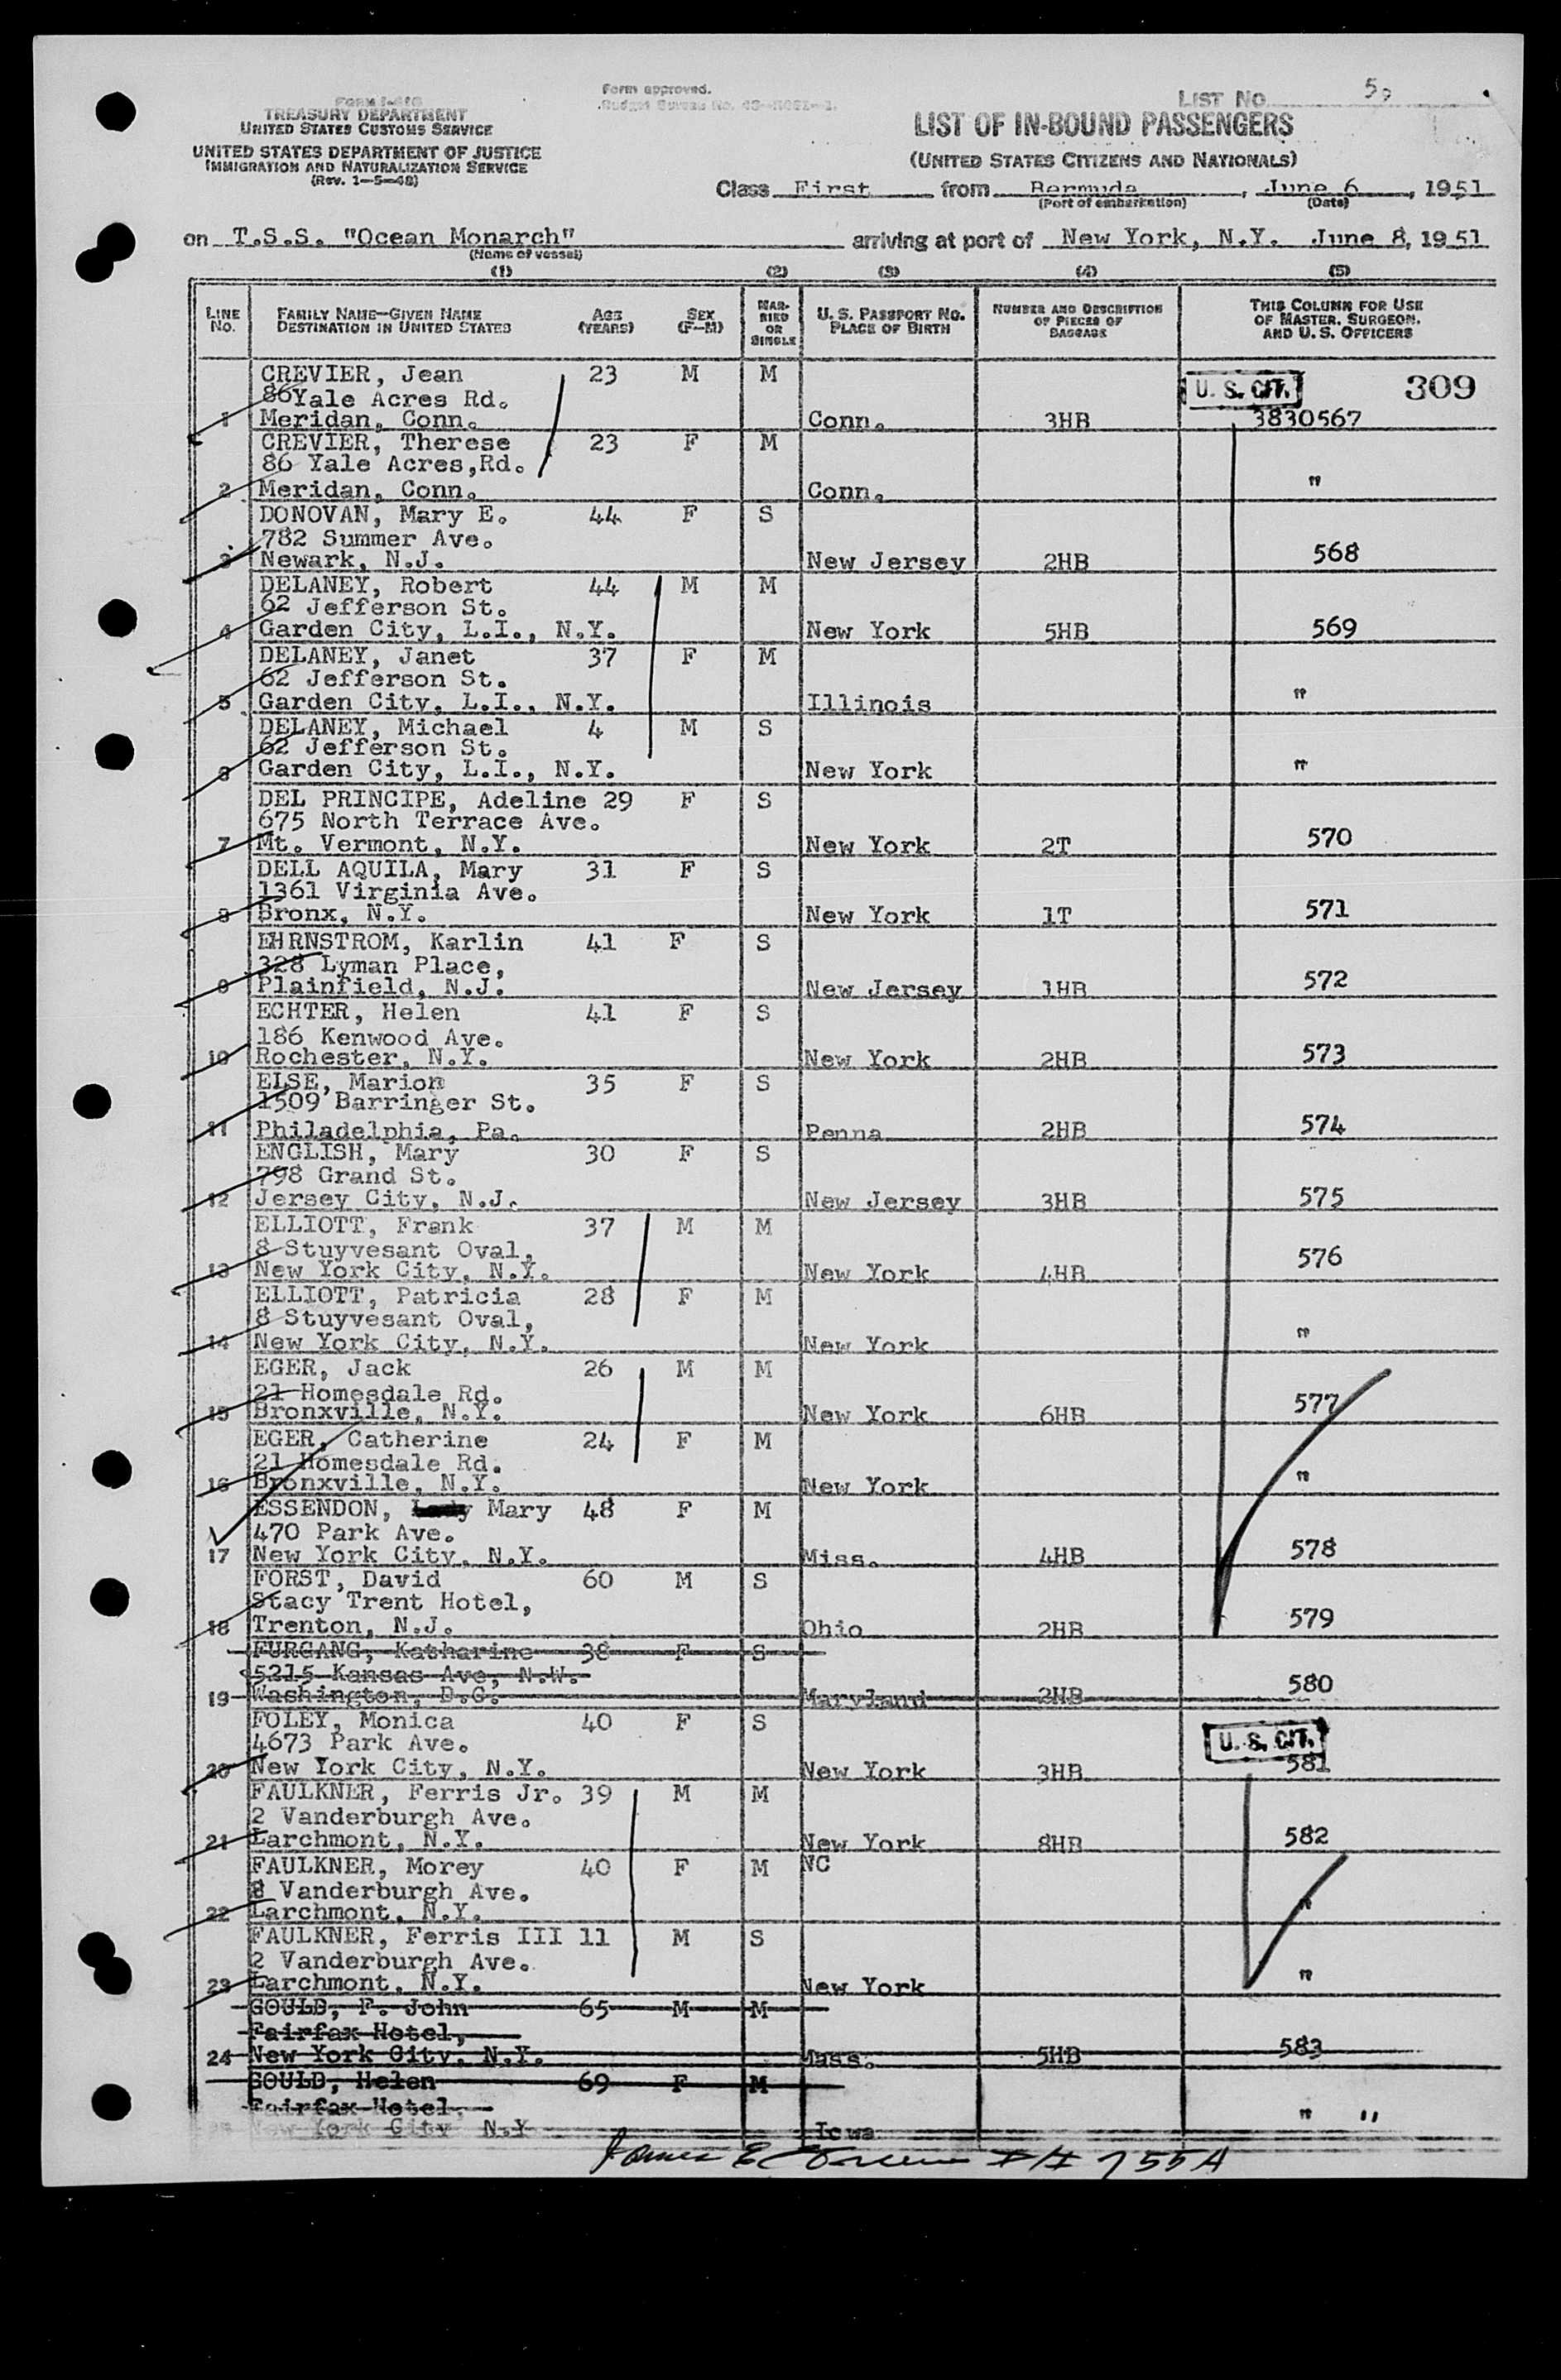 FORM I-416
TREASURY DEPARTMENT
UNITED STATES CUSTOMS SERVICE
UNITED STATES DEPARTMENT OF JUSTICE
IMMIGRATION AND NATURALIZATION SERVICE
(Rev. 1-5-48)
Form approved.
Budget Bureau No.
LIST No. 5
LIST OF IN-BOUND PASSENGERS
(UNITED STATES CITIZENS AND NATIONALS)
Class First from Bermuda, June 6, 1951
(Port of embarkation) (Date)
on T.S.S. "Ocean Monarch" arriving at port of New York, N.Y. June 8, 1951
(Name of vessel)
(1) (2) (3) (4) (5)
LINE No. FAMILY NAME—GIVEN NAME DESTINATION IN UNITED STATES AGE (YEARS) SEX (F—M) MARRIED OR SINGLE U. S. PASSPORT No. PLACE OF BIRTH NUMBER AND DESCRIPTION OF PIECES OF BAGGAGE THIS COLUMN FOR USE OF MASTER, SURGEON, AND U. S. OFFICERS
CREVIER, Jean 23 M M U. S. CIT. 309
86 Yale Acres Rd.
1 Meridan, Conn. Conn. 3HB 3830567
CREVIER, Therese 23 F M
86 Yale Acres,Rd.
2 Meridan, Conn. Conn. "
DONOVAN, Mary E. 44 F S
782 Summer Ave.
3 Newark, N.J. New Jersey 2HB 568
DELANEY, Robert 44 M M
62 Jefferson St.
4 Garden City, L.I., N.Y. New York 5HB 569
DELANEY, Janet 37 F M
62 Jefferson St.
5 Garden City, L.I., N.Y. Illinois "
DELANEY, Michael 4 M S
62 Jefferson St.
6 Garden City, L.I., N.Y. New York "
DEL PRINCIPE, Adeline 29 F S
675 North Terrace Ave.
7 Mt. Vermont, N.Y. New York 2T 570
DELL AQUILA, Mary 31 F S
1361 Virginia Ave.
8 Bronx, N.Y. New York 1T 571
EHRNSTROM, Karlin 41 F S
328 Lyman Place,
9 Plainfield, N.J. New Jersey 1HB 572
ECHTER, Helen 41 F S
186 Kenwood Ave.
10 Rochester, N.Y. New York 2HB 573
ELSE, Marion 35 F S
1509 Barringer St.
11 Philadelphia, Pa. Penna 2HB 574
ENGLISH, Mary 30 F S
798 Grand St.
12 Jersey City, N.J. New Jersey 3HB 575
ELLIOTT, Frank 37 M M
8 Stuyvesant Oval,
13 New York City, N.Y. New York 4HB 576
ELLIOTT, Patricia 28 F M
8 Stuyvesant Oval,
14 New York City, N.Y. New York "
EGER, Jack 26 M M
21 Homesdale Rd.
15 Bronxville, N.Y. New York 6HB 577
EGER, Catherine 24 F M
21 Homesdale Rd.
16 Bronxville, N.Y. New York "
ESSENDON, Lady Mary 48 F M
470 Park Ave.
17 New York City, N.Y. Miss. 4HB 578
FORST, David 60 M S
Stacy Trent Hotel,
18 Trenton, N.J. Ohio 2HB 579
FURGANG, Katharine 38 F S
5215 Kansas Ave, N.W.
19 Washington, D.C. Maryland 2HB 580
FOLEY, Monica 40 F S U. S. CIT.
4673 Park Ave.
20 New York City, N.Y. New York 3HB 581
FAULKNER, Ferris Jr. 39 M M
2 Vanderburgh Ave.
21 Larchmont, N.Y. New York 8HB 582
FAULKNER, Morey 40 F M NC
8 Vanderburgh Ave.
22 Larchmont, N.Y. "
FAULKNER, Ferris III 11 M S
2 Vanderburgh Ave.
23 Larchmont, N.Y. New York "
GOULD, F. John 65 M M
Fairfax Hotel,
24 New York City, N.Y. Mass. 5HB 583
GOULD, Helen 69 F M
Fairfax Hotel, " "
New York City N.Y Iowa
James E 755A